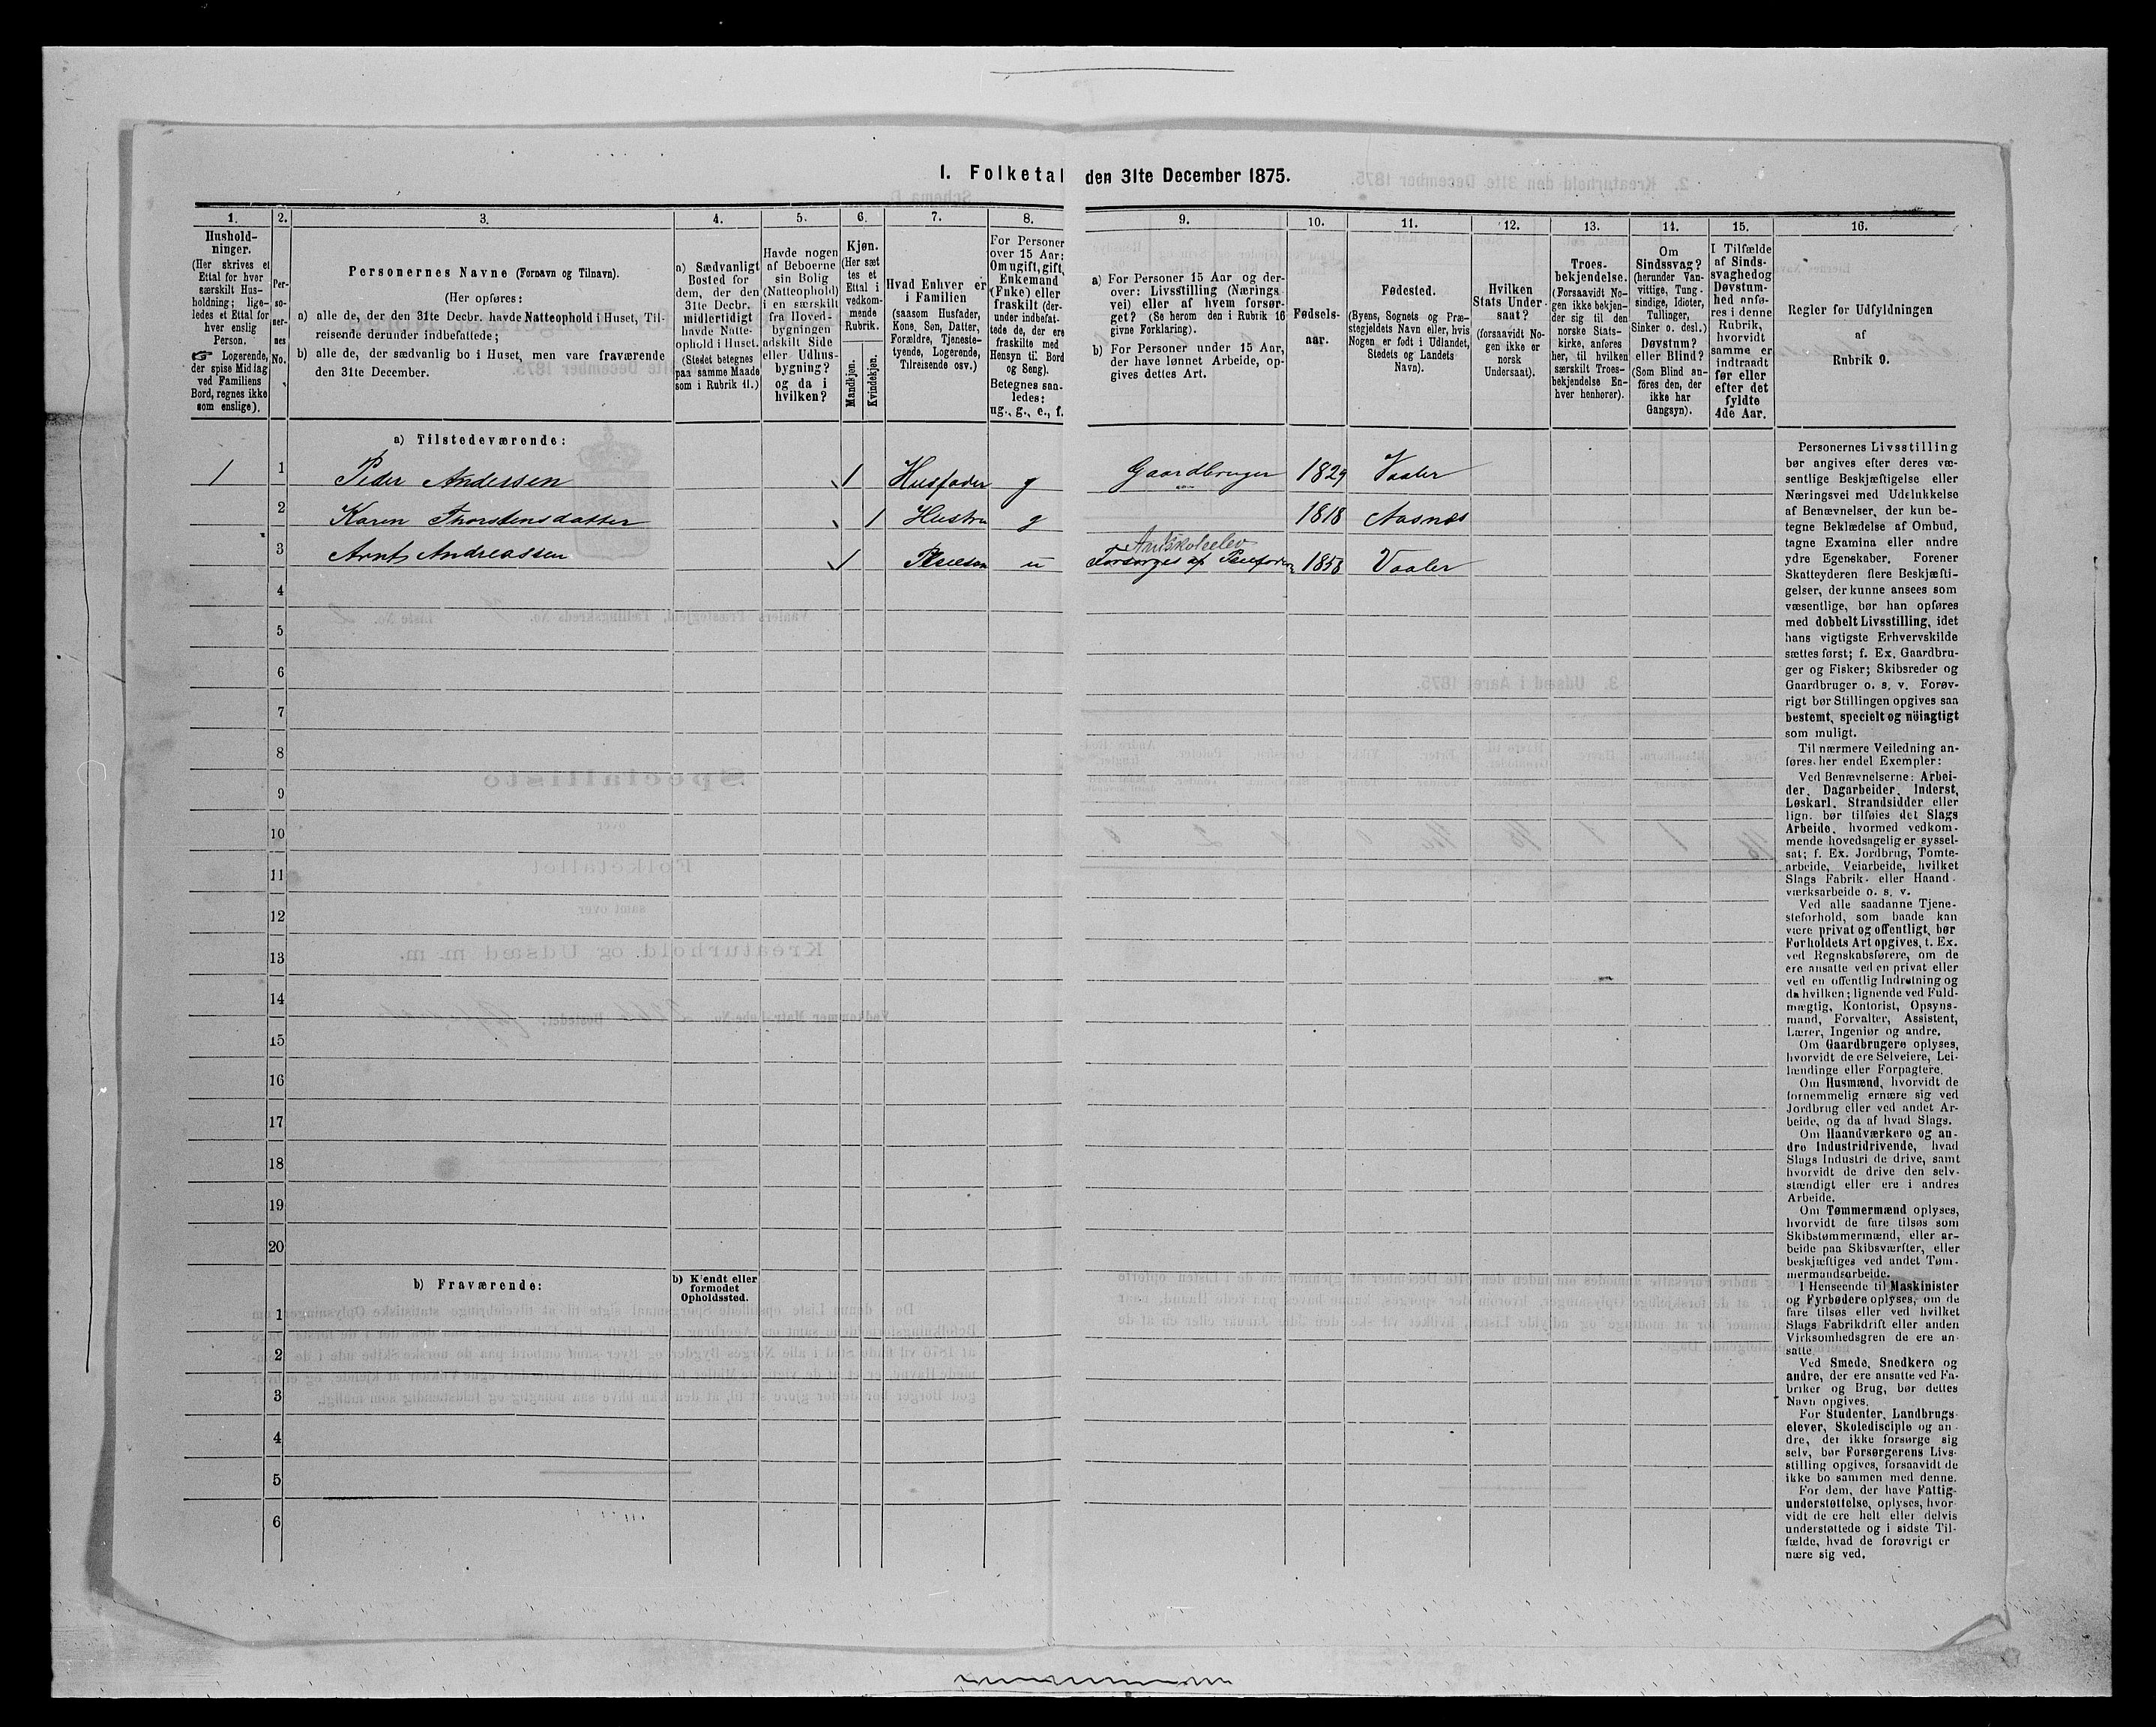 I. Folketal den 31te December 1875.
1. 2. 3. 4. 5. 6. 7. 8. 9. 10. 11. 12. 13. 14. 15. 16.
Hushold-
ninger.
(Her skrives et
Ettal for hver
særskilt Hus-
holdning; lige-
ledes et Ettal for
hver enslig
Person.
☞ Logerende,
der spise Middag
ved Familiens
Bord, regnes ikke
som enslige).
Per-
so-
ner-
nes
No.
Personernes Navne (Fornavn og Tilnavn).
(Her opføres:
a) alle de, der den 31te Decbr. havde Natteophold i Huset, Til-
reisende derunder indbefattede;
b) alle de, der sædvanlig bo i Huset, men vare fraværende
den 31te December.
a) Sædvanligt
Bosted for
dem, der den
31te Decbr.
midlertidigt
havde Natte-
ophold i Huset.
(Stedet betegnes
paa samme Maade
som i Rubrik 11.)
Havde nogen
af Beboerne
sin Bolig
(Natteophold)
i en særskilt
fra Hoved-
bygningen
adskilt Side
eller Udhus-
bygning?
og da i
hvilken?
Kjøn.
(Her sæt
tes et
Ettal i
vedkom-
mende
Rubrik.
Mandkjøn.
Kvindekjøn.
Hvad Enhver er
i Familien
(saasom Husfader,
Kone, Søn, Datter,
Forældre, Tjeneste-
tyende, Logerende,
Tilreisende osv.)
For Personer
over 15 Aar:
Om ugift, gift,
Enkemand
(Enke) eller
fraskilt (der-
under indbefat-
tede de, der ere
fraskilte med
Hensyn til Bord
og Seng).
Betegnes saa-
ledes:
ug., g., e., f.
a) For Personer 15 Aar og der-
over: Livsstilling (Nærings
vei) eller af hvem forsør-
get? (Se herom den i Rubrik 16
givne Forklaring).
b) For Personer under 15 Aar,
der have lønnet Arbeide, op-
gives dettes Art.
Fødsels-
aar.
Fødested.
(Byens, Sognets og Præ-
stegjeldets Navn eller, hvis
Nogen er født i Udlandet,
Stedets og Landets
Navn).
Hvilken
Stats Under-
saat?
(forsaavidt No-
gen ikke er
norsk
Undersaat).
Troes-
bekjendelse.
(Forsaavidt No-
gen ikke bekjen-
der sig til den
norske Stats-
kirke, anføres
her, til hvilken
særskilt Troes-
bekjendelse En-
hver henhører).
Om
Sindssvag?
(herunder Van-
vittige, Tung-
sindige, Idioter,
Tullinger,
Sinker o. desl.)
Døvstum?
eller Blind?
(Som Blind an-
føres den, der
ikke har
Gangsyn).
I Tilfælde
af Sinds-
svaghed og
Døvstum-
hed anfø-
res i denne
Rubrik,
hvorvidt
samme er
indtraadt
før eller
efter det
fyldte
4de Aar.
Regler for Udfyldningen
af
Rubrik 9.
a) Tilstedeværende:
1 1 Peder Andersen 1 Husfader g Gaardbruger 1829 Vaaler
2 Karen Thorstensdatter 1 Hustru g 1818 Aasnæs
Amtskoleelev
3 Arnt Andreassen 1 Pleiesøn u Forsørges af Pleiefaderen 1858 Vaaler
4
5
6
7
8
9
10
11
12
13
14
15
16
17
18
19
20
b) Fraværende:
b) Kjendt eller
formodet
Opholdssted.
1
2
3
4
5
6
Personernes Livsstilling
bør angives efter deres væ-
sentlige Beskjæftigelse eller
Næringsvei med Udelukkelse
af Benævnelser, der kun be-
tegne Beklædelse af Ombud,
tagne Examina eller andre
ydre Egenskaber. Forener
Skatteyderen flere Beskjæfti-
gelser, der kunne ansees som
væsentlige, bør han opføres
med dobbelt Livsstilling, idet
hans vigtigste Erhvervskilde
sættes først; f. Ex. Gaardbru-
ger og Fisker; Skibsreder og
Gaardbruger o. s. v. Forøv-
rigt bør Stillingen opgives saa
bestemt, specielt og nöiagtigt
som muligt.
Til nærmere Veiledning an-
føres her endel Exempler:
Ved Benævnelserne: Arbei-
der, Dagarbeider, Inderst,
Løskarl, Strandsidder eller
lign. bør tilføies det Slags
Arbeide, hvormed vedkom-
mende hovedsagelig er syssel-
sat; f. Ex. Jordbrug, Tomte-
arbeide, Veiarbeide, hvilket
Slags Fabrik- eller Haand-
værksarbeide o. s. v.
Ved alle saadanne Tjene-
steforhold, som baade kan
være privat og offentligt, bør
Forholdets Art opgives, t. Ex.
ved Regnskabsførere, om de
ere ansatte ved en privat eller
ved en offentlig Indretning og
da hvilken; lignende ved Fuld-
mægtig, Kontorist, Opsyns-
mand, Forvalter, Assistent,
Lærer, Ingeniør og andre.
Om Gaardbrugere oplyses,
hvorvidt de ere Selveiere, Lei-
lændinge eller Forpagtere.
Om Husmænd, hvorvidt de
fornemmelig ernære sig ved
Jordbrug eller ved andet Ar-
beide, og da af hvad Slags.
Om Haandværkere og an-
dre Industridrivende, hvad
Slags Industri de drive, samt
hvorvidt de drive den selv-
stændigt eller ere i andres
Arbeide.
Om Tømmermænd oplyses,
hvorvidt de fare tilsøs som
Skibstømmermænd, eller ar-
beide paa Skibsværfter, eller
beskjæftiges ved andet Tøm-
mermandsarbeide.
I Henseende til Maskinister
og Fyrbødere oplyses, om de
fare tilsøs eller ved hvilket
Slags Fabrikdrift eller anden
Virksomhedsgren de ere an-
satte.
Ved Smede, Snedkere og
andre, der ere ansatte ved Fa-
briker og Brug, bør dettes
Navn opgives.
For Studenter, Landbrugs-
elever, Skoledisciple og an-
dre, der ikke forsørge sig
selv, bør Forsørgerens Livs-
stilling opgives, forsaavidt de
ikke bo sammen med denne.
For dem, der have Fattig-
understøttelse, oplyses, hvor-
vidt de ere helt eller delvis
understøttede og i sidste Til-
fælde, hvad de forøvrigt er
nære sig ved.